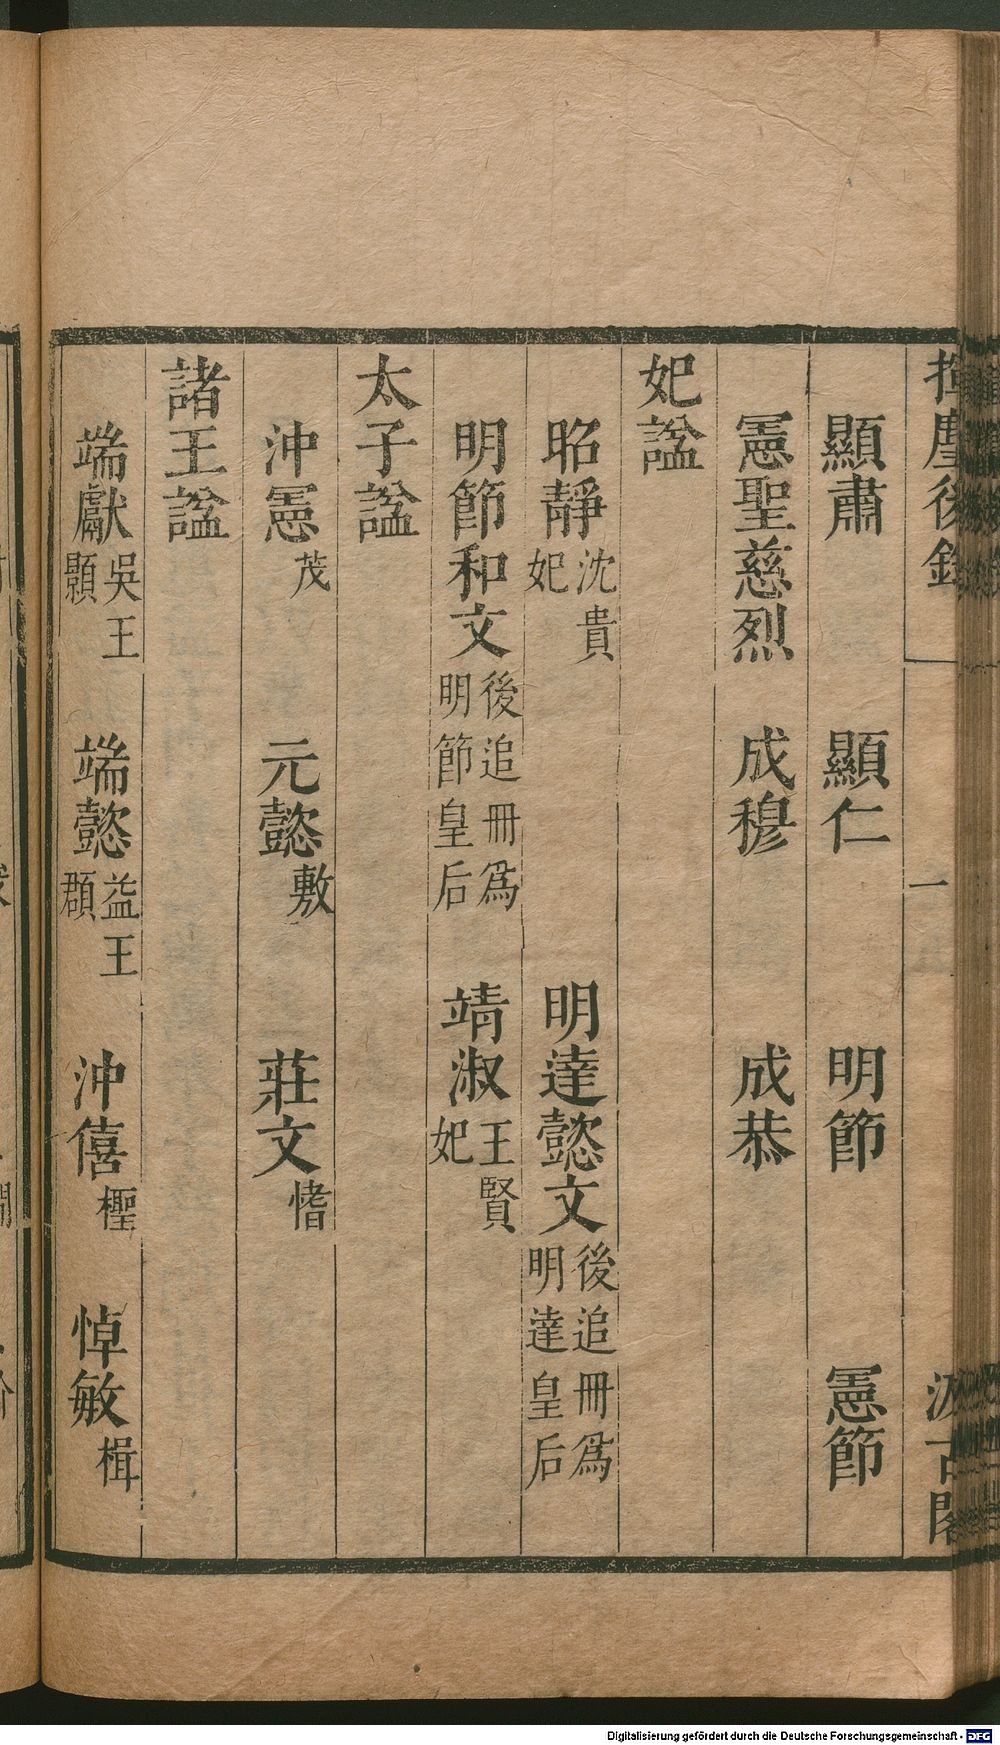 揮麈後錄　一　汲古閣
顯肅　顯仁　明節　憲節
憲聖慈烈　成穆　成恭
妃諡
昭靜沈貴妃　明達懿文後追冊爲明達皇后
明節和文後追冊爲明節皇后　靖淑王賢妃
太子諡
沖憲茂　元懿旉　莊文愭
諸王諡
端獻吳王顥　端懿益王頵　沖僖檉　悼敏楫
Digitalisierung gefördert durch die Deutsche Forschungsgemeinschaft - DFG